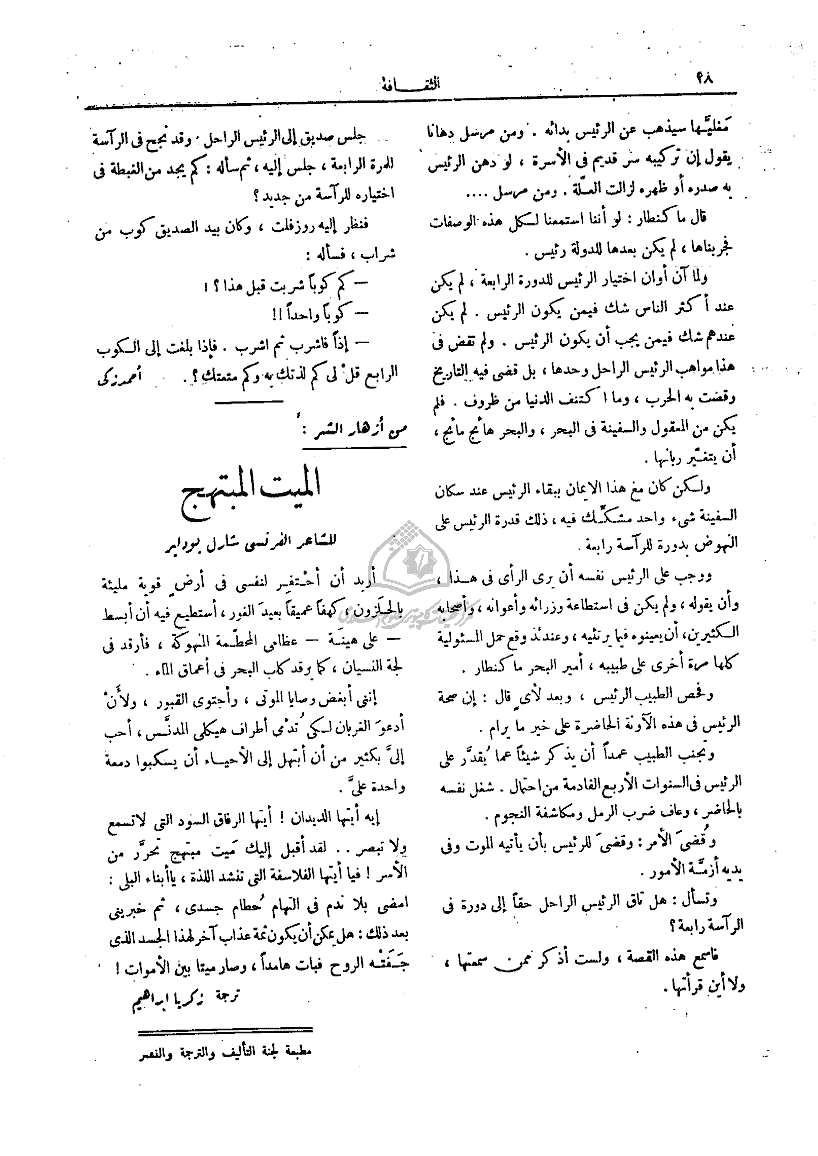 ٢٨
الثقافة
مَغليَّها سيذهب عن الرئيس بدائه . ومن مرسل دهانا
يقول إن تركيبه سر قديم فى الأسرة ، لو دهن الرئيس
به صدره أو ظهره لزالت العلة . ومن مرسل ....
قال ماكنطار : لو أننا استمعنا لكل هذه الوصفات
فجربناها ، لم يكن بعدها للدولة رئيس .
ولما آن أوان اختيار الرئيس للدورة الرابعة ، لم يكن
عند أكثر الناس شك فيمن يكون الرئيس . لم يكن
عندهم شك فيمن يجب أن يكون الرئيس . ولم تقض فى
هذا مواهب الرئيس الراحل وحدها ، بل قضى فيه التاريخ
وقضت به الحرب ، وما اكتنف الدنيا من ظروف . فلم
يكن من المعقول والسفينة فى البحر ، والبحر هائج مائج ،
أن يتغيّر ربانها .
ولكن كان مع هذا الايمان ببقاء الرئيس عند سكان
السفينة شىء واحد مشكّك فيه ، ذلك قدرة الرئيس على
النهوض بدورة للرآسة رابعة .
ووجب على الرئيس نفسه أن يرى الرأى فى هذا ،
وأن يقوله ، ولم يكن فى استطاعة وزرائه وأعوانه ، وأصحابه
الكثيرين، أن يعينوه فيما يرتئيه ، وعندئذ وقع حمل المسئولية
كلها مرة أخرى على طبيبه ، أمير البحر ماكنطار .
وفحص الطبيب الرئيس ، وبعد لأى قال : إن صحة
الرئيس فى هذه الآونة الحاضرة على خير ما يرام .
وتجنب الطبيب عمداً أن يذكر شيئاً عما يُقدَّر على
الرئيس فى السنوات الأربع القادمة من احتمال . شغل نفسه
بالحاضر ، وعاف ضرب الرمل ومكاشفة النجوم .
وقُضىَ الأمر : وقضىَ للرئيس بأن يأتيه الموت وفى
يديه أزمَّة الأمور .
وتسأل : هل تاق الرئيس الراحل حقاً إلى دورة فى
الرآسة رابعة ؟
فاسمع هذه القصة ، ولست أذكر ممن سمعتها ،
ولا أين قرأتها .
جلس صديق إلى الرئيس الراحل . وقد نجح فى الرآسة
للمرة الرابعة ، جلس إليه ، ثم سأله : كم يجد من الغبطة فى
اختياره للرآسة من جديد ؟
فنظر إليه روزفلت ، وكان بيد الصديق كوب من
شراب ، فسأله :
— كم كوباً شربت قبل هذا ؟ !
— كوباً واحداً !!
— إذاً فاشرب ثم اشرب . فإذا بلغت إلى الكوب
الرابع قلْ لى كم لذتك به وكم متعتك ؟ . أحمد زكى
من أزهار الشر :
الميت المبتهج
للشاعر الفرنسى شارل بودلير
أريد أن أحْتفِر لنفسى فى أرضٍ قوية مليئة
بالحلزون ، كهفاً عميقاً بعيدَ الغور ، أستطيع فيه أن أبسط
— على هينَة — عظامى المحطَّمة المنهوكة ، فأرقد فى
لجة النسيان ، كما يرقد كلب البحر فى أعماق الماء .
إننى أبغض وصايا الموتى ، وأجتوى القبور ، ولأَنْ
أدعوَ الغربان لكى تُدْمى أطراف هيكلى المدنَّس ، أحب
إلىَّ بكثير من أن أبتهل إلى الأحياء أن يسكبوا دمعة
واحدة علىَّ .
إيه أيتها الديدان ! أيتها الرفاق السود التى لا تسمع
ولا تبصر .. لقد أقبل إليك مَيت مبتهج تحرَّر من
الأسر ! فيا أيتها الفلاسفة التى تنشد اللذة ، يا أبناء البلى :
امضى بلا ندم فى التهام حُطام جسدى ، ثم خبرينى
بعد ذلك : هل يمكن أن يكون ثمة عذاب آخر لهذا الجسد الذى
جفَتْه الروح فبات هامداً ، وصار ميتا بين الأموات !
ترجمة زكريا ابراهيم
مطبعة لجنة التأليف والترجمة والنشر